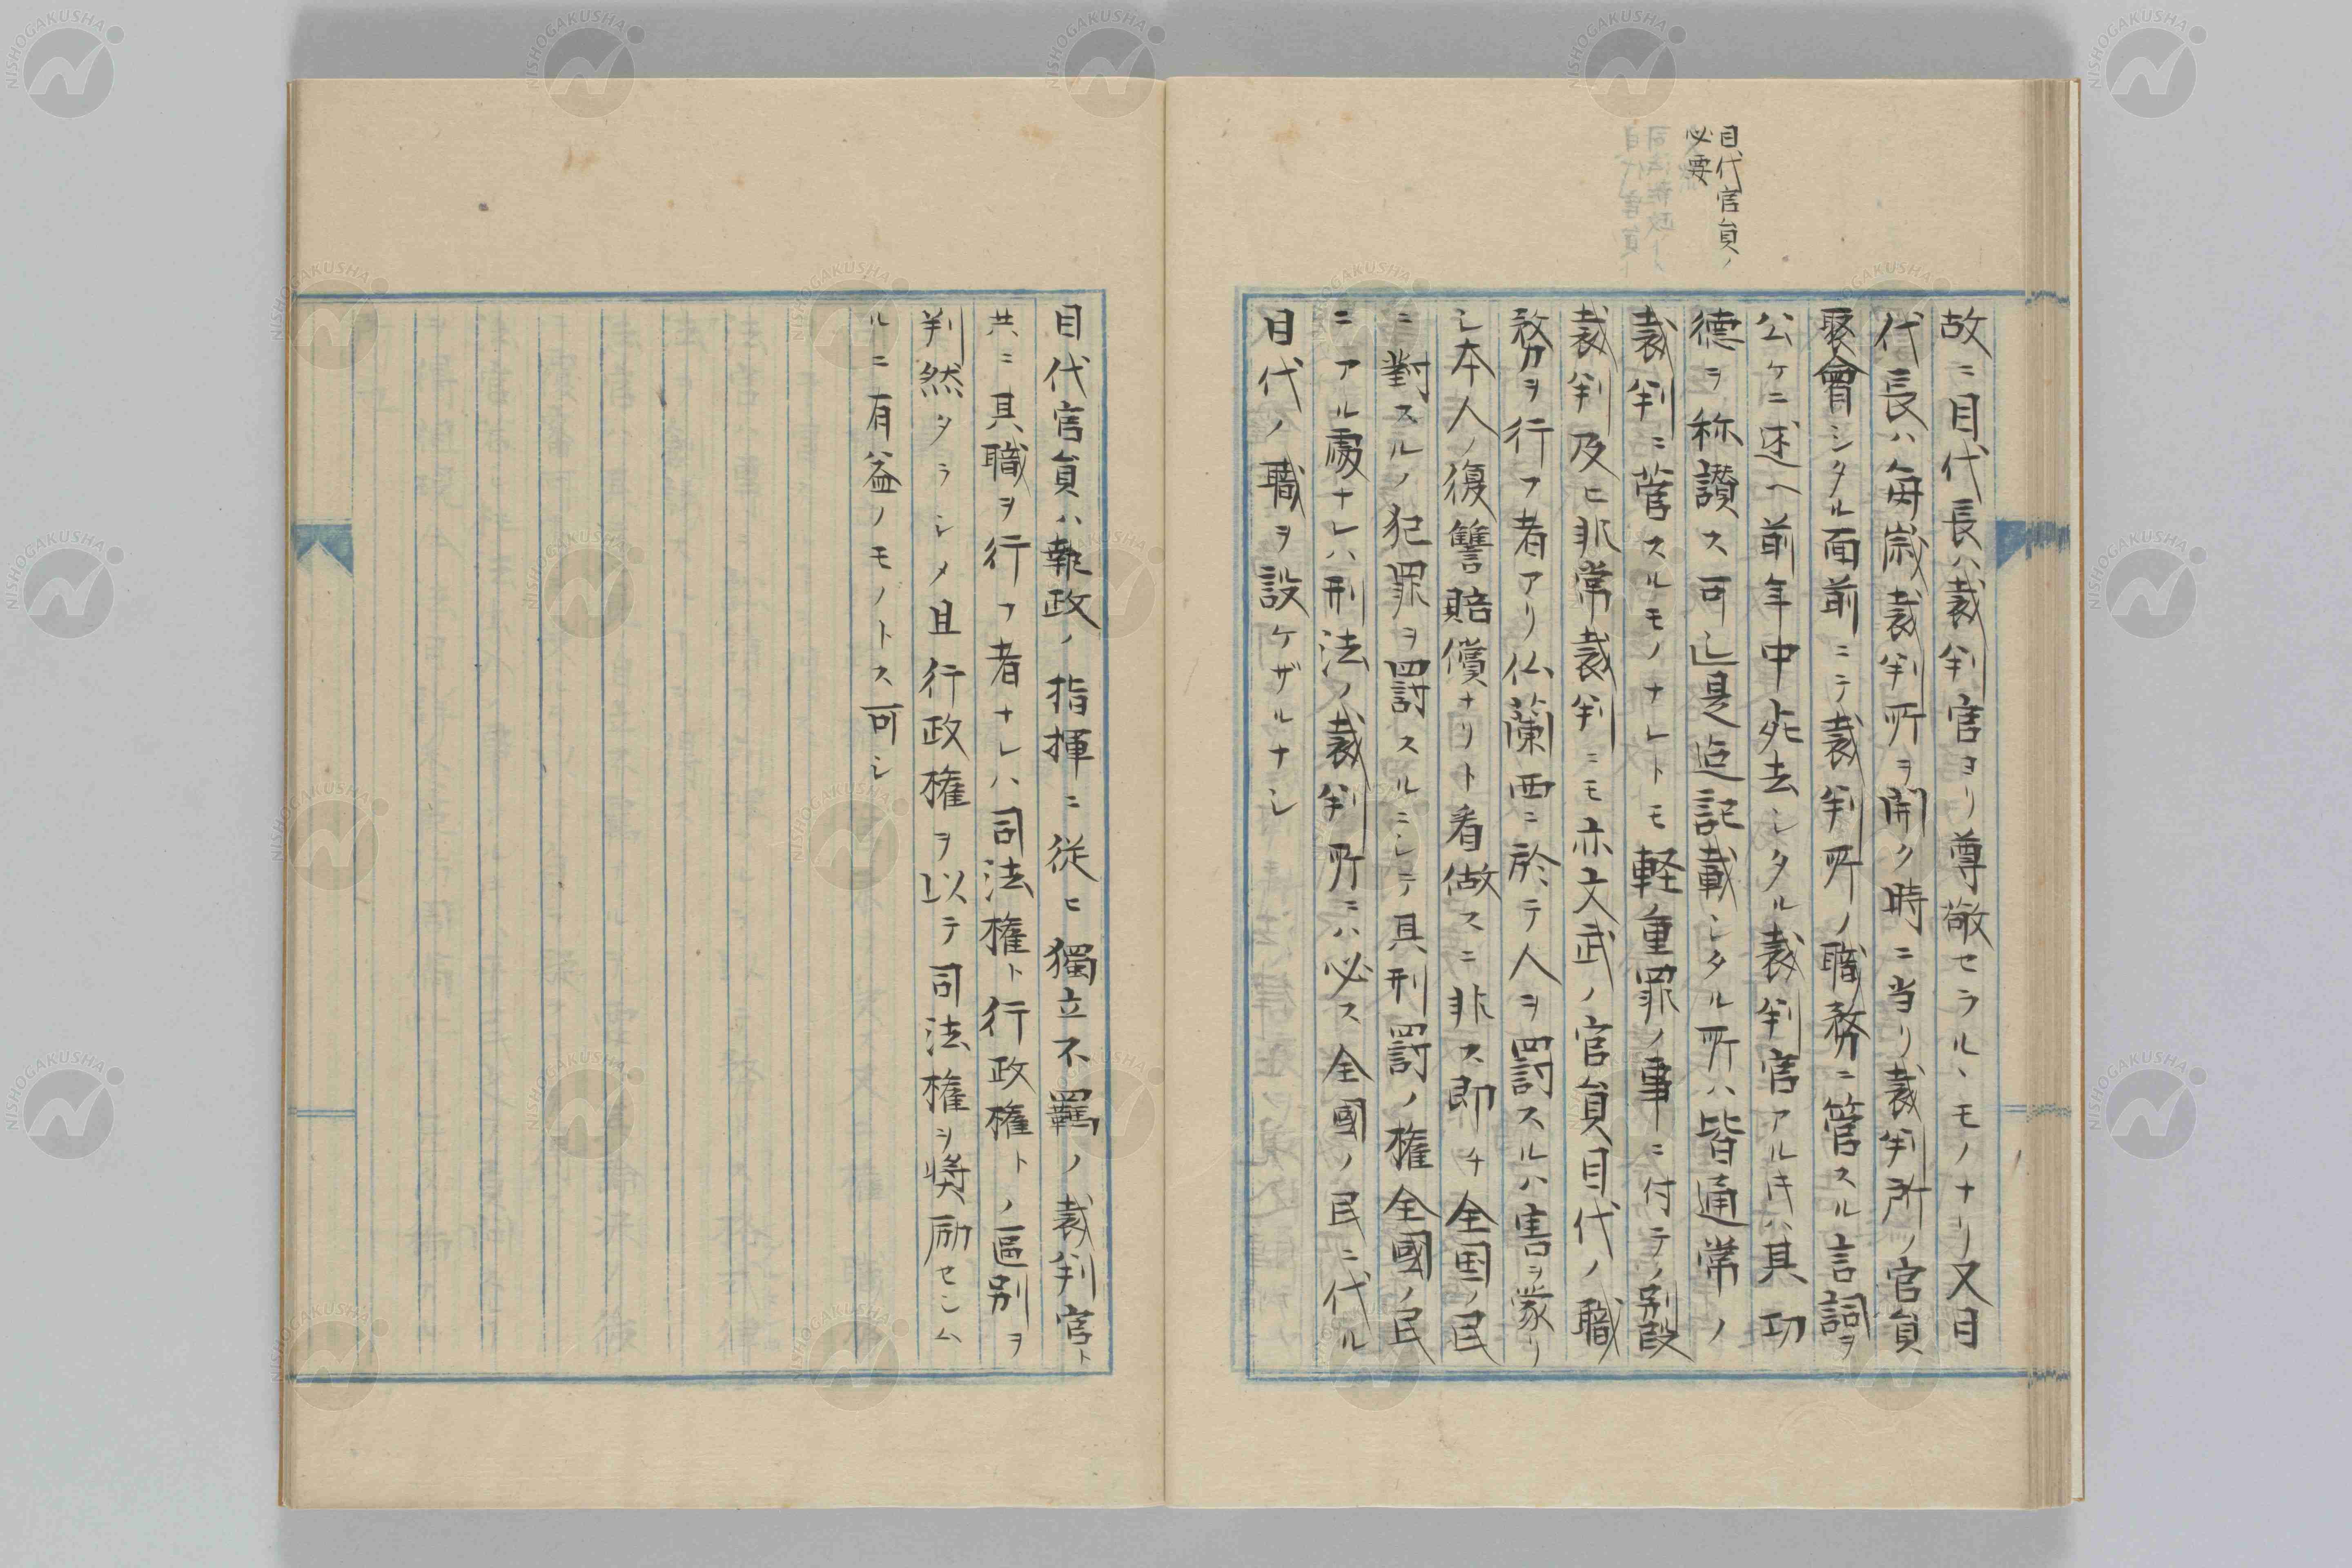 目代官員ノ
必要
故ニ目代長ハ裁判官ヨリ尊敬セラルヽモノナリ又目
代長ハ毎歳裁判所ヲ開ク時ニ当リ裁判所ノ官員
聚會シタル面前ニテ裁判所ノ職務ニ管スル言詞ヲ
公ケニ述ヘ前年中死去シタル裁判官アルキハ其功
徳ヲ称讃ス可シ是迠記載シタル所ハ皆通常ノ
裁判ニ管スルモノナレトモ軽重罪ノ事ニ付テノ別段
裁判及ヒ非常裁判ニモ亦文武ノ官員目代ノ職
務ヲ行フ者アリ仏蘭西ニ於テ人ヲ罰スルハ害ヲ蒙リ
シ本人ノ復讐賠償ナリト看做スニ非ス即チ全国ノ民
ニ對スルノ犯罪ヲ罰スルニシテ其刑罰ノ権全國ノ民
ニアル處ナレハ刑法ノ裁判所ニハ必ス全國ノ民ニ代ル
目代ノ職ヲ設ケザルナシ
目代官員ハ執政ノ指揮ニ従ヒ獨立不羈ノ裁判官ト
共ニ其職ヲ行フ者ナレハ司法権ト行政権トノ區別ヲ
判然タラシメ且行政権ヲ以テ司法権ヲ奨励セシム
ルニ有益ノモノトス可シ
NISHOGAKUSHA